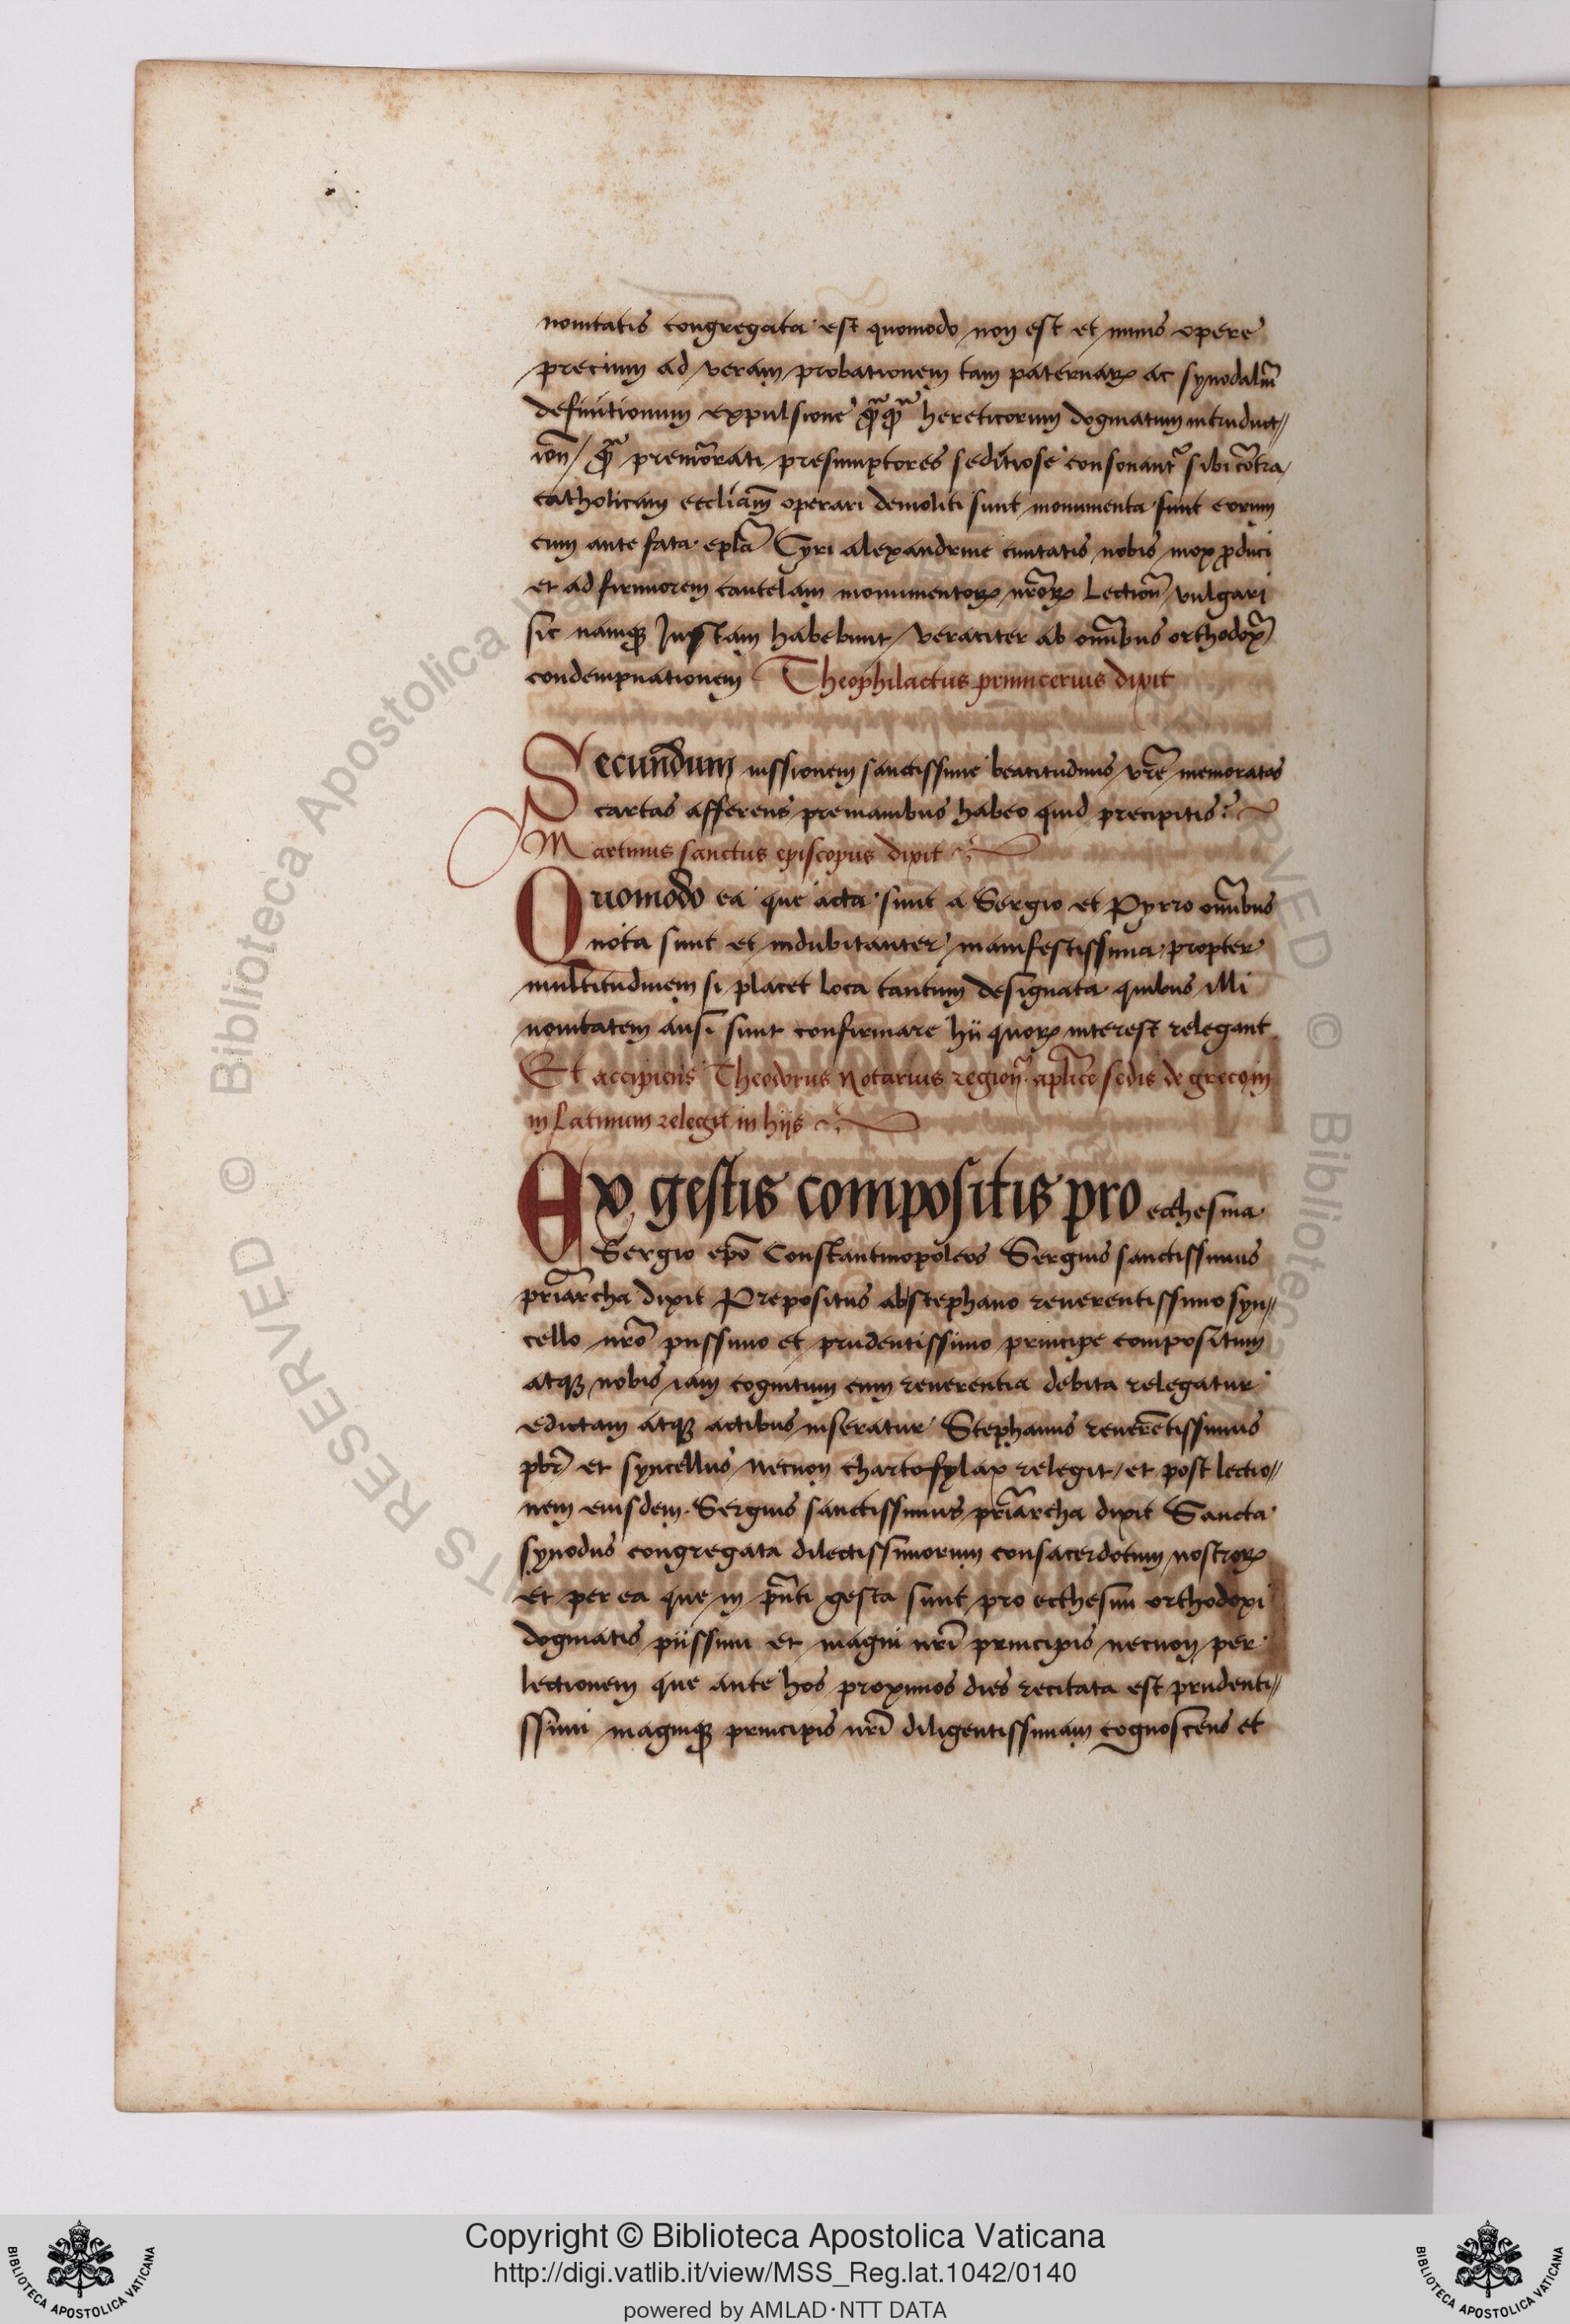 nouitatis congregata est quomodo non est et nimis opere
precium ad veram probationem tam paternaꝝ ac synodaliū
definitionum expulsione hereticorum dogmatum introduct〃
iōn premōrati presumptores seditiose consonanť sibi cōtra
catholicam eccliām operari demoliti sunt monumenta sunt eorum
cum ante fata eplā Cyri alexandrine ciuitatis nobis mox ꝓduci
et ad firmiorem cautelam monumentoꝝ nr̄oꝝ Lection̄ vulgari
sic namqꝫ Iustam habebunt veraciter ab om̄ibus orthodox̄
condempnationem Theophilactus primicerius dixit
Secundum iussionem sanctissime beatitudinis vr̄e memoratas
cartas afferens premanibus habeo quid precipitis?
Martinus sanctus episcopus dixit
Quomodo ea que acta sunt a Sergio et Pyrro om̄ibus
nota sunt et indubitanter manifestissima propter
multitudinem si placet loca tantum designata quibus illi
nouitatem ausi sunt confirmare hii quoꝝ interest relegant
Et accipiens Theodorus Notarius region̄ aplīce sedis de greco in
in Latinum relegit in hijs
Ex gestis compositis pro ecthesina
Sergio ep̄o Constantinopoleos Sergius sanctissimus
pr̄iarcha dixit Prepositus abstephano reuerentissimo syn〃
cello nr̄o piissimo et prudentissimo principe compositum
atqꝫ nobis iam cognitum cum reuerentia debita relegatur
edictam atqꝫ actibus inseratur Stephanus reuerētissimus
pbr̄ et syncellus necnon chartofylax relegit et post lectio〃
nem eiusdem. Sergius sanctissimus pr̄iarcha dixit Sancta
synodus congregata dilectissimorum consacerdotum nostroꝝ
et per ea que in pn̄ti gesta sunt pro ecthesim orthodoxi
dogmatis piissimi et magni nr̄i principis necnon per
lectionem que ante hos proximos dies recitata est prudenti〃
ssimi magniqꝫ principis nr̄i diligentissimam cognoscens et
Copyright © Biblioteca Apostolica Vaticana
http://digi.vatlib.it/view/MSS_Reg.lat.1042/0140
powered by AMLAD·NTT DATA